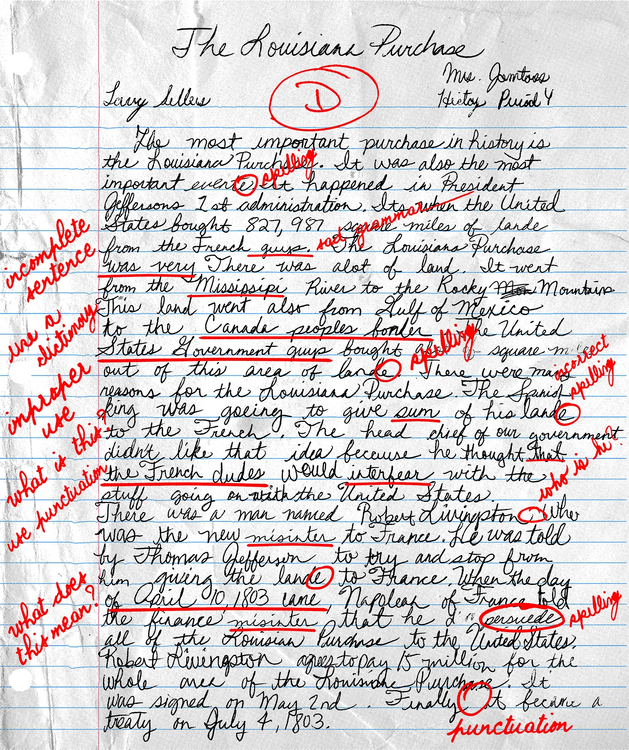 The Louisiana Purchase
Mrs. Jamtoss
Larry Sellers
D
History Period 4
The most important purchase in history is
the Louisiana Purchase. It was also the most
spelling
important evente. It happened in President
Jeffersons 1st administration. Its when the United
States bought 827,987 square miles of lande
sad grammar
from the French guys. The Louisiana Purchase
incomplete
sentence
was very There was alot of land. It went
from the Missisipi River to the Rocky Mountains
use a
dictionary
This land went also from Gulf of Mexico
to the Canada peoples border. The United
spelling
States Government guys bought square miles
improper
use
out of this area of lande. There were many
incorrect
spelling
reasons for the Louisiana Purchase. The Spanish
King was goeing to give sum of his lande
what is this?
use punctuation
to the French. The head chief of our government
didn't like that idea becuase he thought that
who is he?
the French dudes would interfear with the
stuff going on with the United States.
There was a man named Robert Livingston who
was the new misinter to France. He was told
by Thomas Jefferson to try and stop from
him giving the lande to France. When the day
what does
this mean?
of April 10, 1803 came, Napolean of France told
the finance misinter that he persuede
spelling
all of the Louisian Purchase to the United States.
Robert Livingston agres to pay 15 million for the
whole area of the Louisiana Purchase. It
was signed on May 2nd. Finally It became a
treaty on July 4, 1803.
punctuation